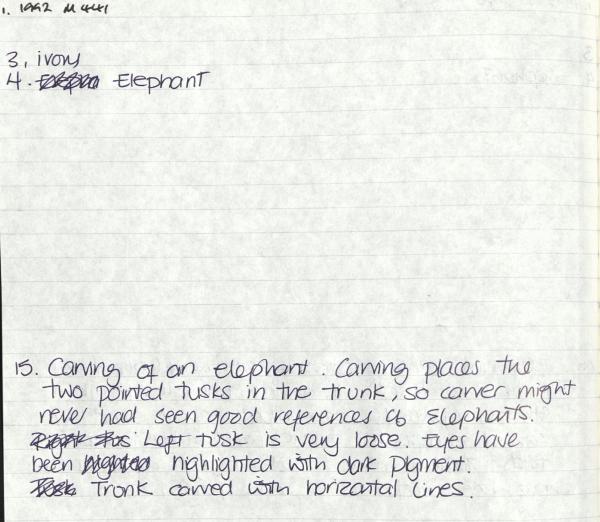 1. 1992 M 441
3, ivory
4. Elephant
15. Carving of an elephant. Carving places the
two pointed tusks in the trunk, so carver might
never had seen good references of Elephants.
Left tusk is very loose. Eyes have
been highlighted with dark pigment.
Trunk carved with horizontal lines.